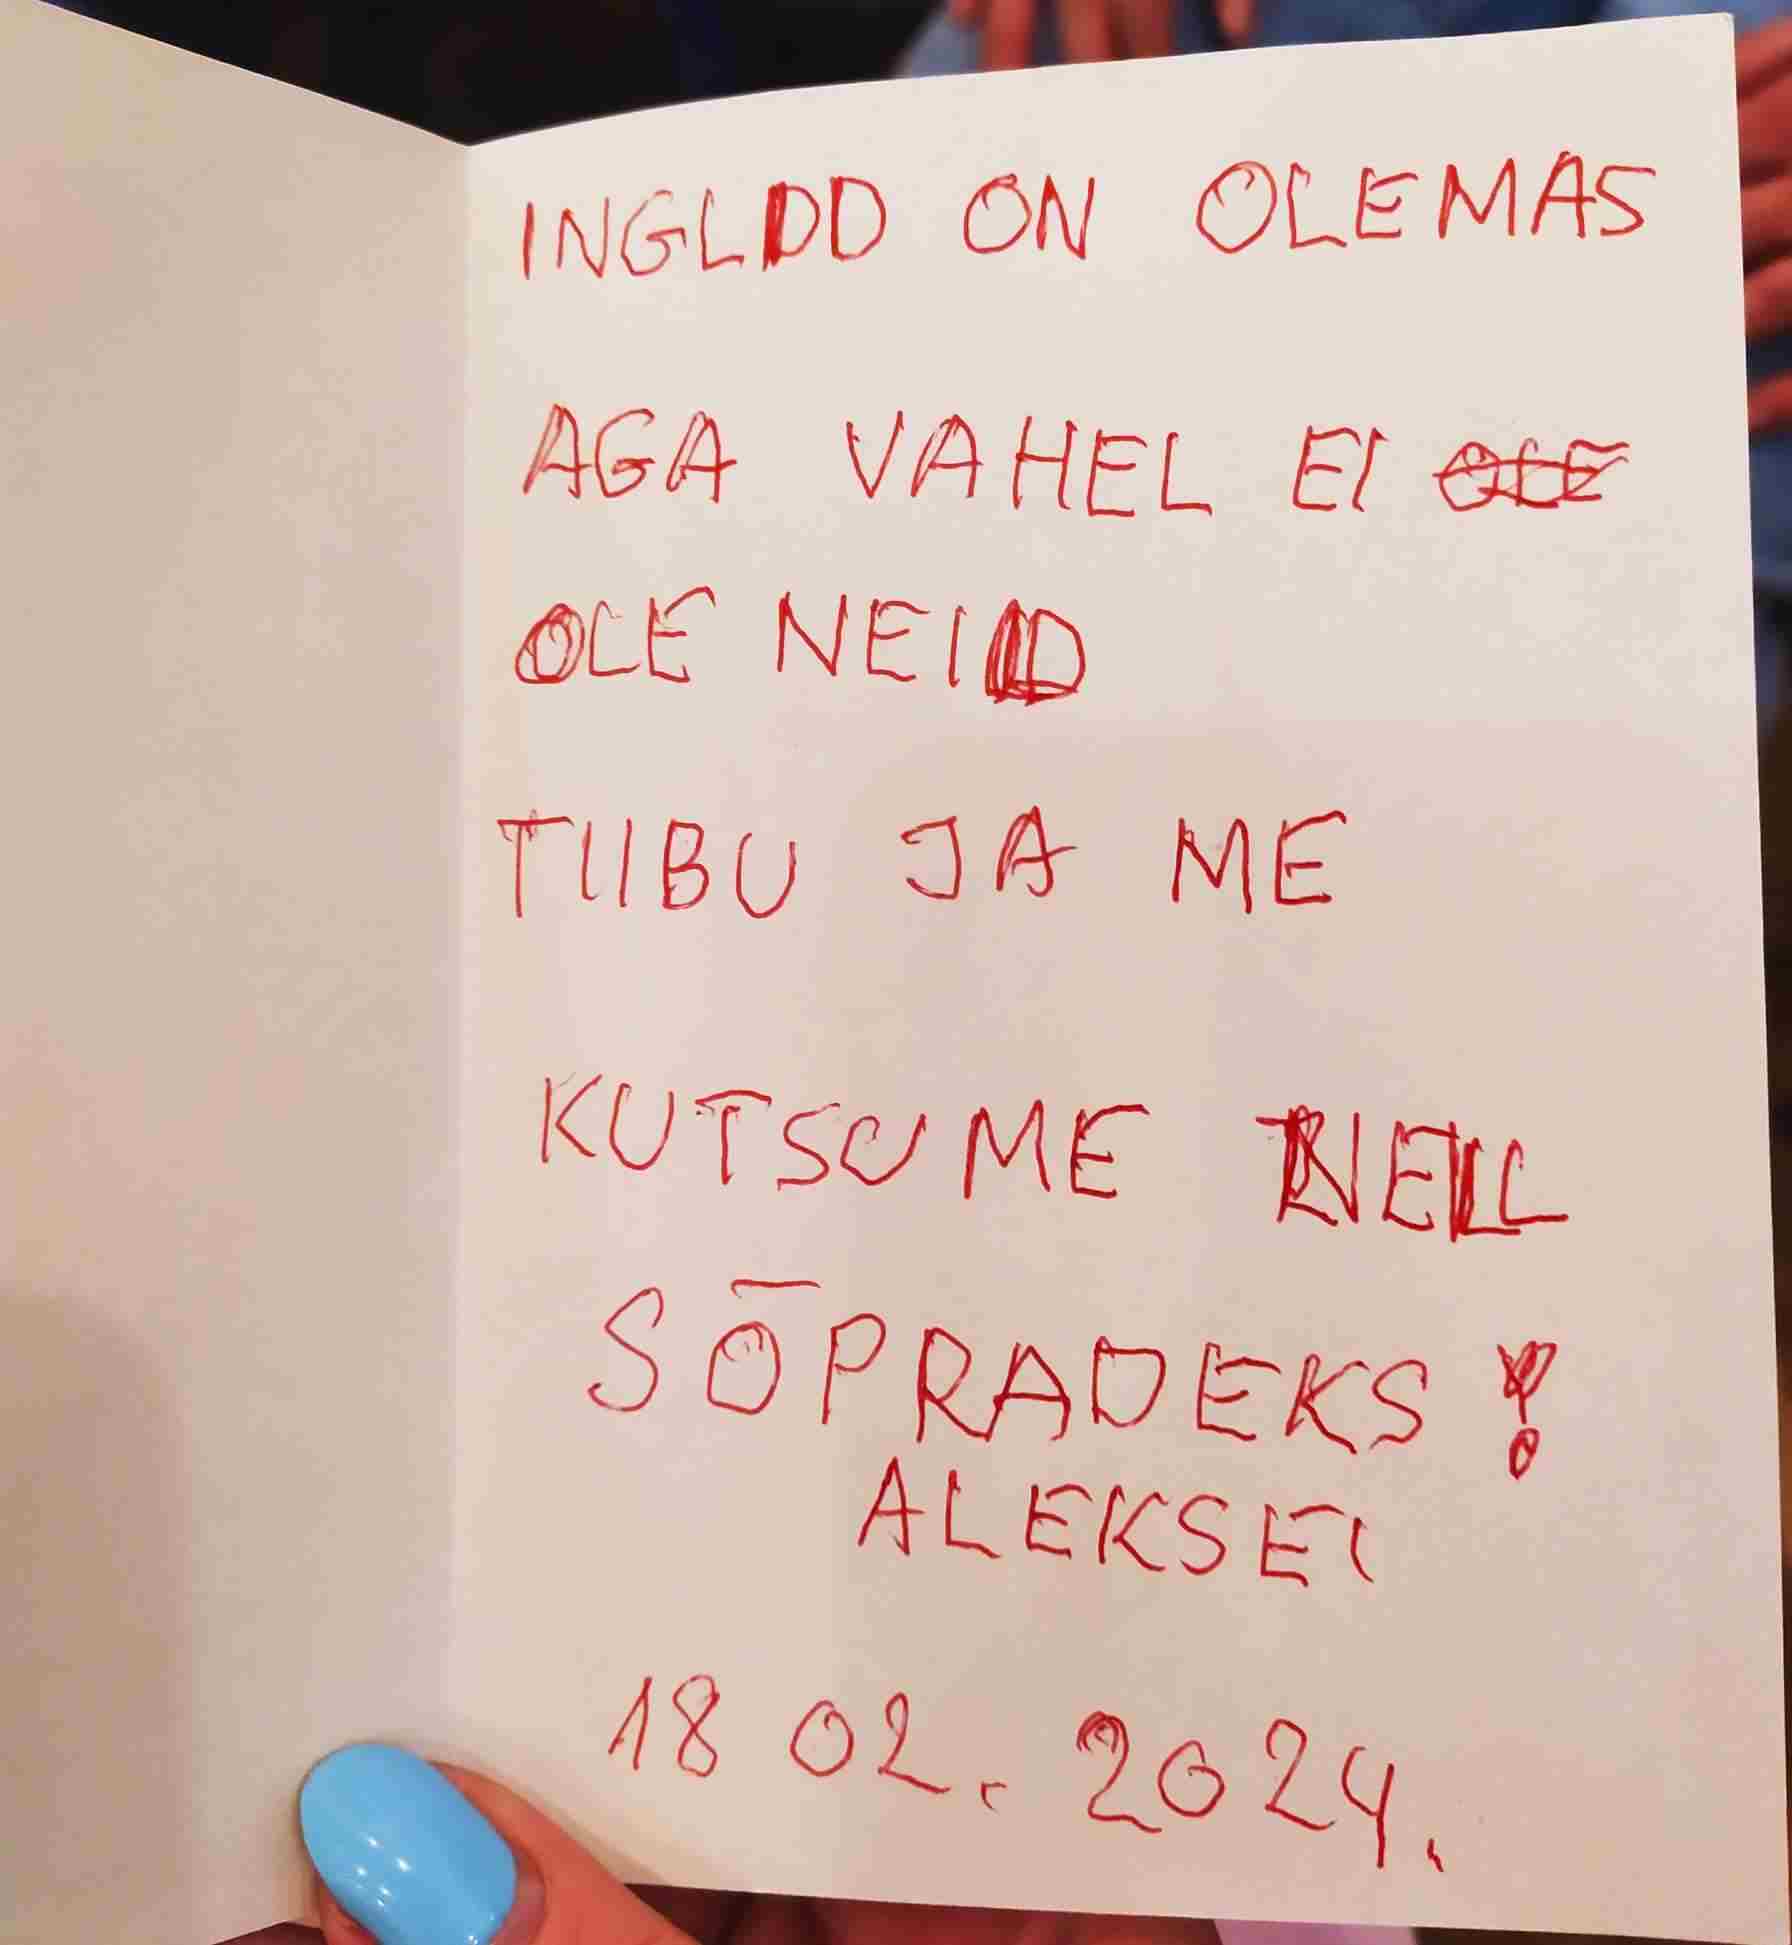 INGLID ON OLEMAS
AGA VAHEL EI
OLE NEID
TIIBU JA ME
KUTSUME NEIL
SŌPRADEKS!
ALEKSEI
18 02. 2024.